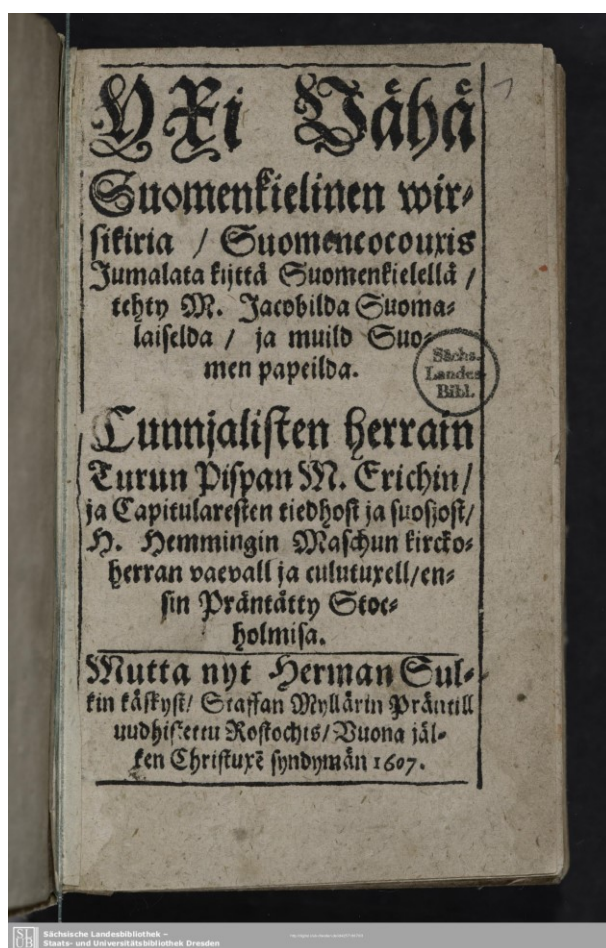 YXi Vähä
Suomenkielinen wir⸗
sikiria / Suomencocouxis
Jumalata kijttä Suomenkielellä /
tehty M. Jacobilda Suoma⸗
laiselda / ja muild Suo⸗
men papeilda.
Sächs.
Landes
Bibl.
Cunnjalisten herrain
Turun Pispan M. Erichin /
ja Capitularesten tiedhost ja suosiost /
H. Hemmingin Maschun kircko⸗
herran vaevall ja culutuxell / en⸗
sin Präntätty Stoc⸗
holmisa.
Mutta nyt Herman Sul⸗
kin käskyst / Staffan Myllärin Präntill
uudhistettu Rostochis / Vuona jäl⸗
ken Christuxē syndymän 1607.
SLUB
Sächsische Landesbibliothek –
Staats- und Universitätsbibliothek Dresden